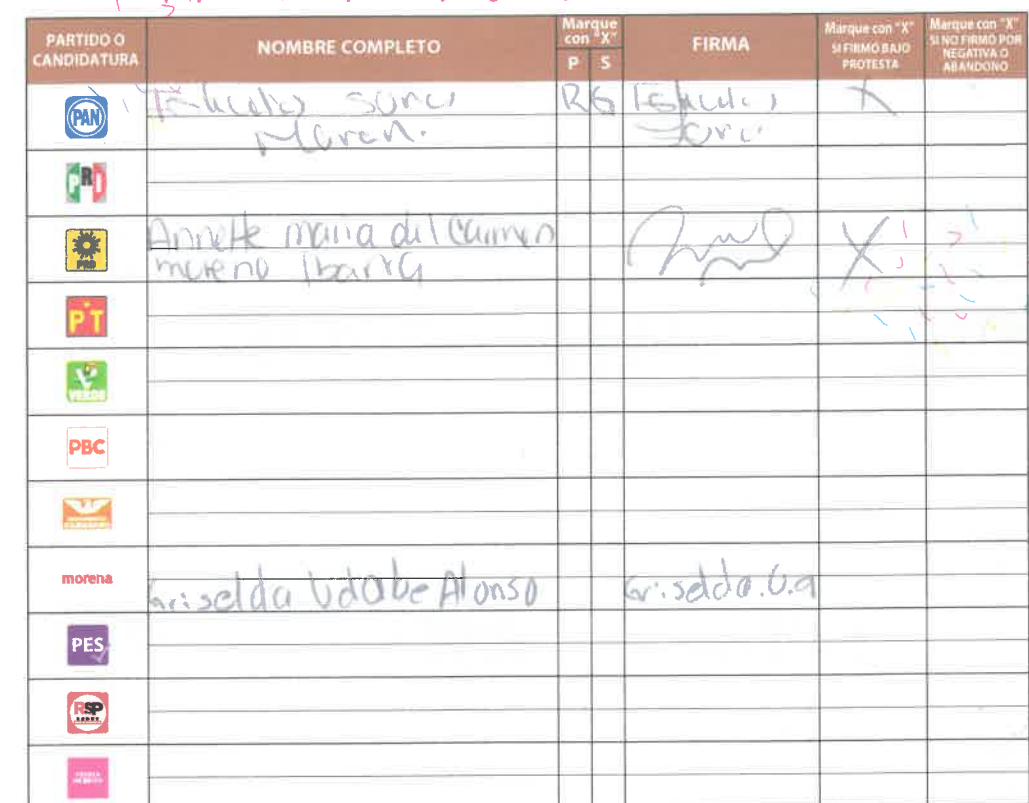 PARTIDO O
CANDIDATURA
NOMBRE COMPLETO
Marque
con "X"
P S
FIRMA
Marque con "X"
SI FIRMÓ BAJO
PROTESTA
Marque con "X"
SI NO FIRMÓ POR
NEGATIVA O
ABANDONO
PAN
R G
X
PRI
PRD
Annette maria del Carmen
moreno Ibarra
X
PT
VERDE
PBC
morena
Griselda Udabe Alonso
Griselda.U.a
PES
RSP